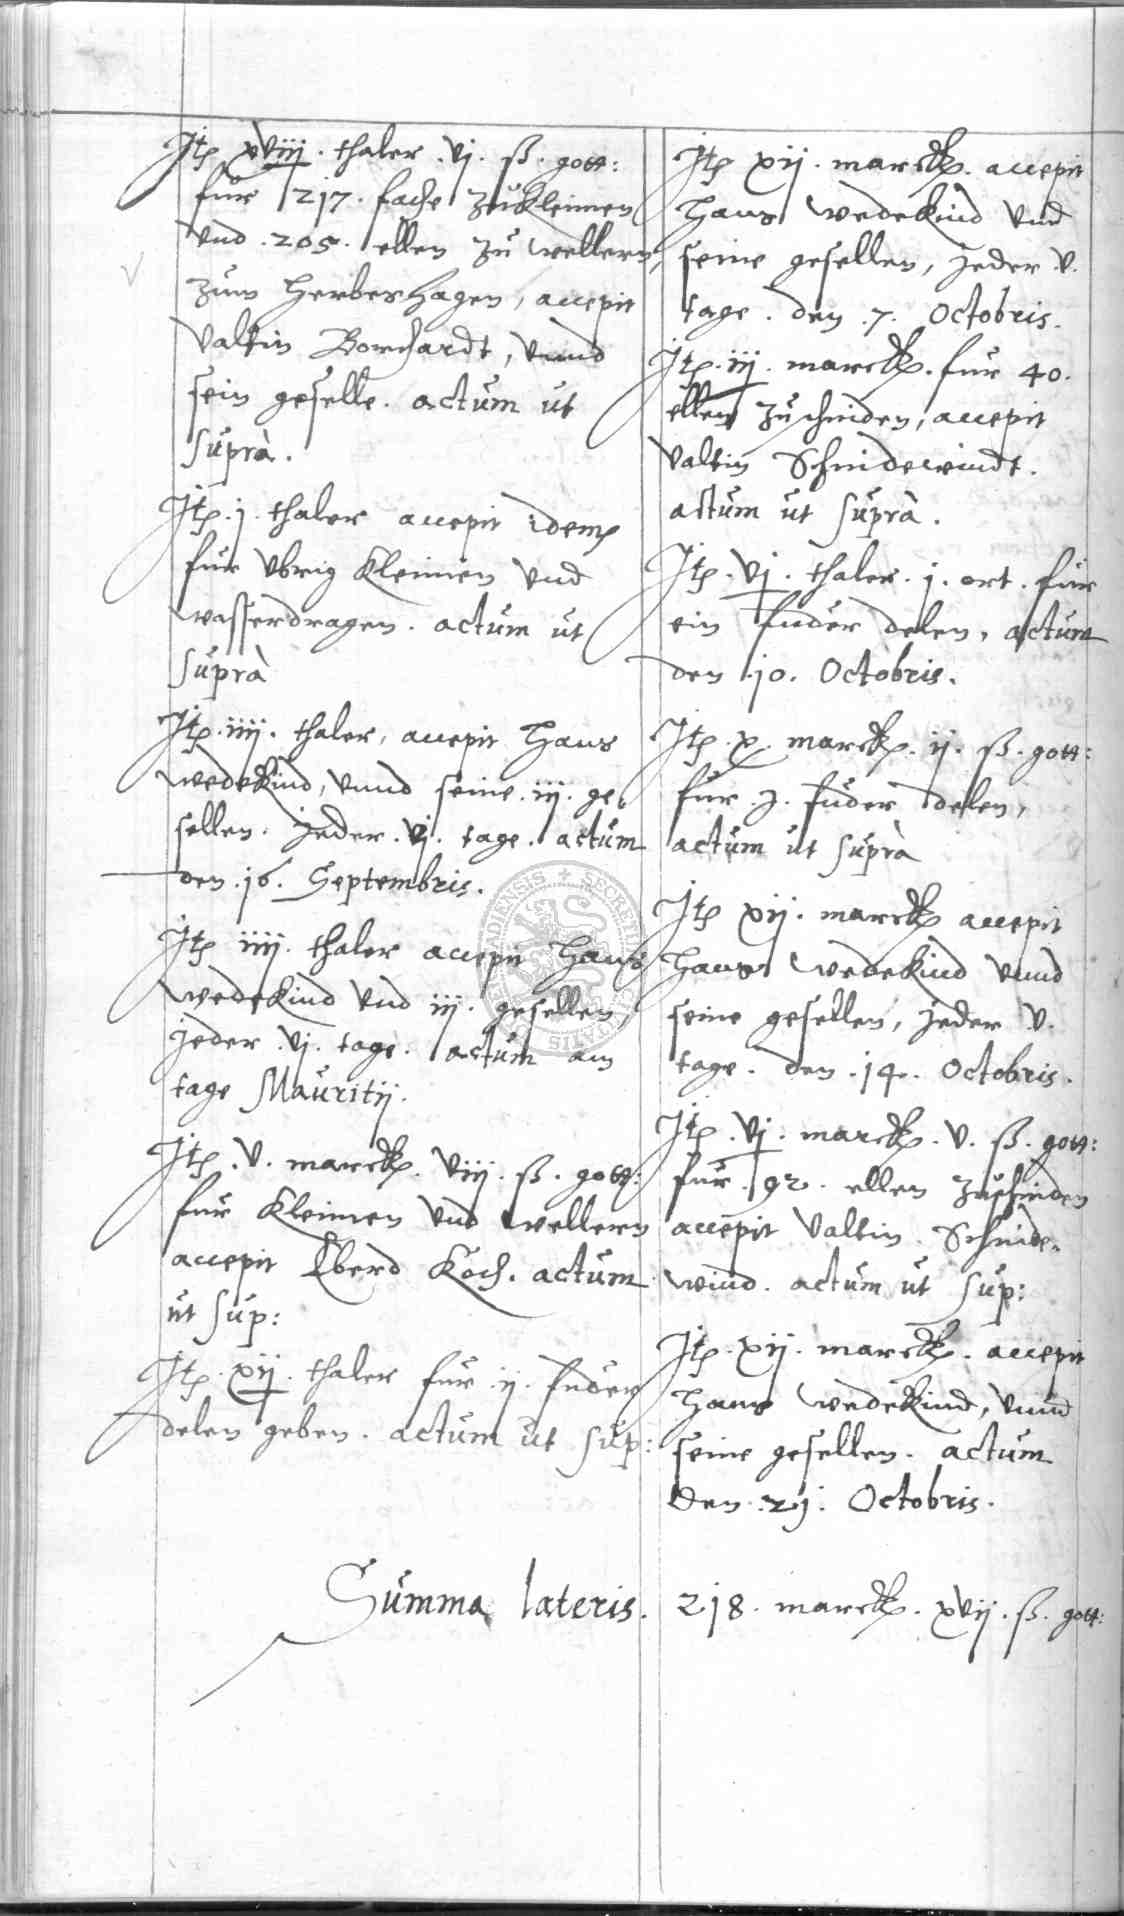 Itē xviij. thaler .vj. ß. gott:
fur 217. fache zukleimen
und .205. ellen zu wellern,
zum Herbershagen, accepit
Valtin Borchardt, unnd
sein geselle. actum ut
suprà.
Itē .j. thaler accepit idem
fur ubrig kleimen und
wasserdragen. actum ut
suprà
Itē .iiij. thaler, accepit Hans
wedekind, unnd seine .iij. ge-
sellen. jeder .vj. tage. actum
den .16. Septembris.
Itē iiij. thaler accepit Hans
wedekind und iij. gesellen,
jeder .vj. tage. actum am
tage Mauritij.
Itē .v. marck. viij. ß. gott:
fur kleimen und wellern
accepit Eberd Koch. actum
ut sup:
Itē .xij. thaler fur .ij. fuder
delen geben. actum ut sup:
Itē xij. marck. accepit
Hans wedekind und
seine gesellen, jeder v.
tage. den .7. Octobris.
Itē .iij. marck. fur 40.
ellen zuschniden, accepit
Valtin Schnidewindt.
actum ut suprà.
Itē .vj. thaler .j. ort. fur
ein fuder delen, actum
den .10. Octobris.
Itē .x. marck. ij. ß. gott:
fur .j. fuder delen,
actum ut suprà
Itē xij. marck accepit
Hans wedekind unnd
seine gesellen, jeder v.
tage. den .14. Octobris.
Itē .vj. marck. v. ß. gott:
fur .92. ellen zuschniden
accepit Valtin Schnide-
wind. actum ut sup:
Itē .xij. marck. accepit
Hans wedekind, unnd
seine gesellen. actum
Den .21. Octobris.
Summa lateris. 218. marck. xvij. ß. gott:
SECRET